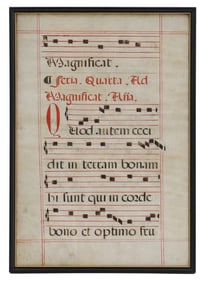 Magnificat.
Feria. Quarta. Ad
Magnificat. Aña.
Quod autem ceci
dit in terram bonam
hi sunt qui in corde
bono et optimo seu